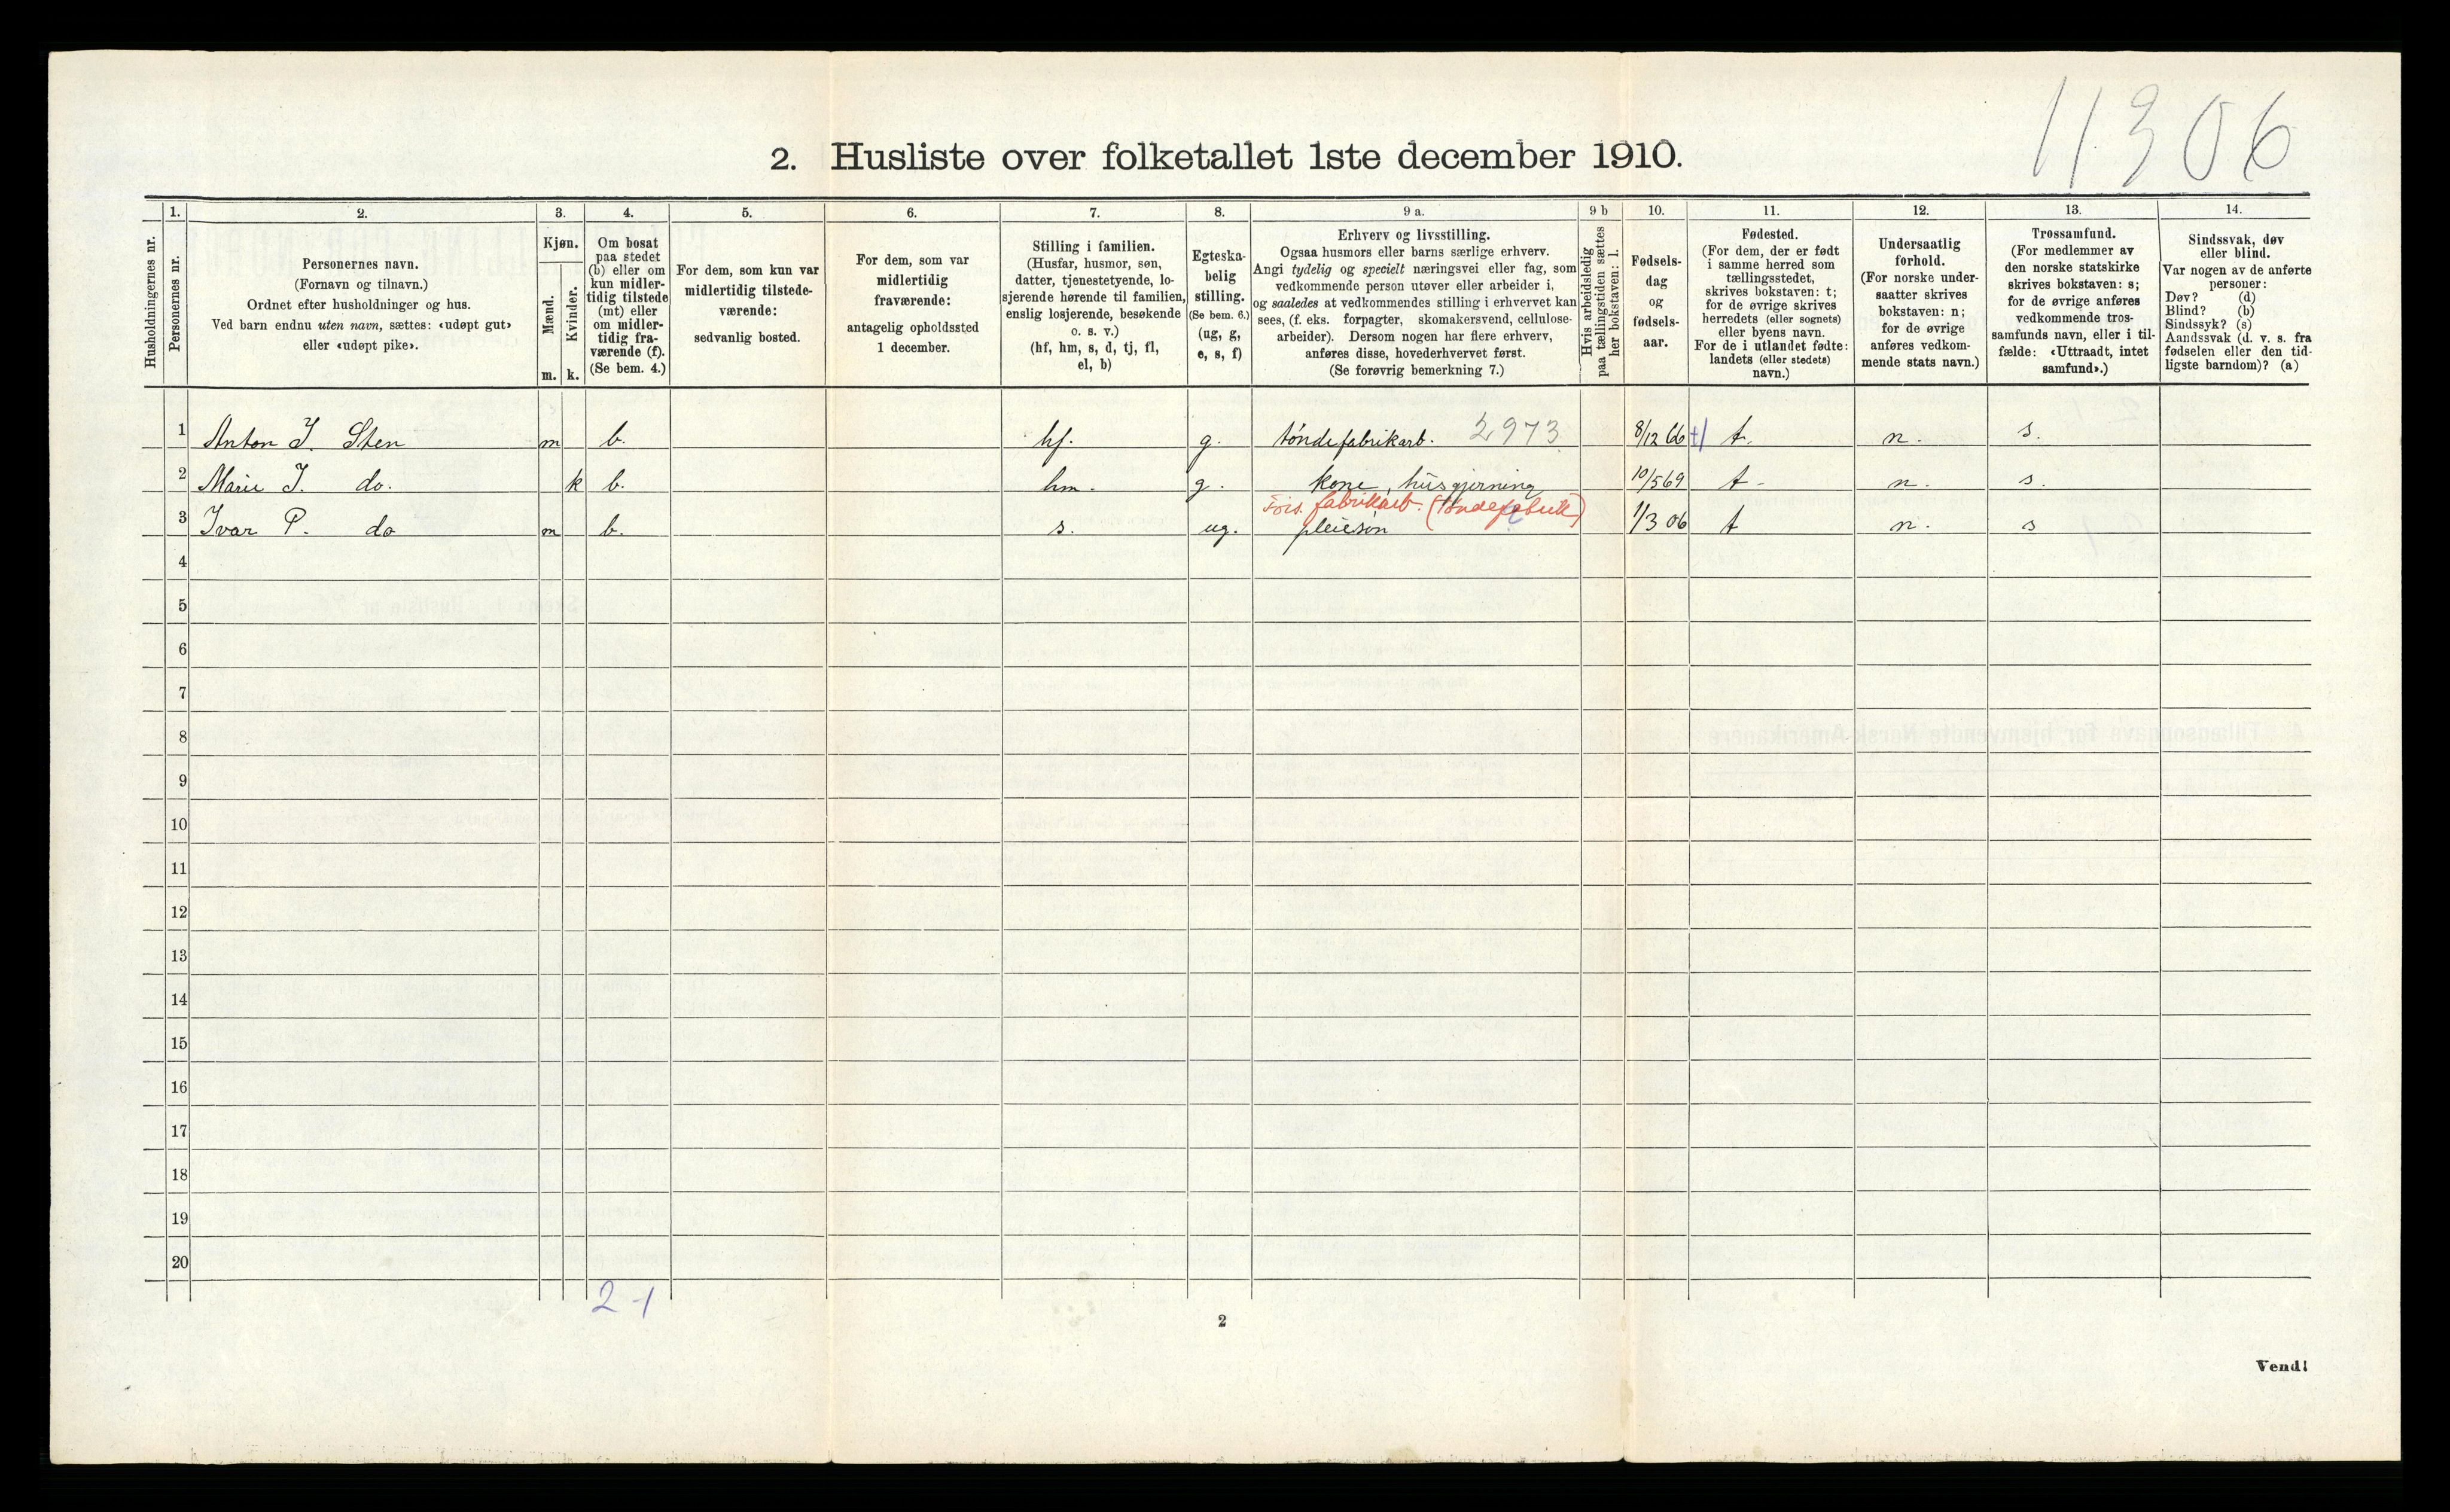 11306
2. Husliste over folketallet 1ste december 1910.
Husholdningernes nr.
1.
Personernes nr.
2.
Personernes navn.
(Fornavn og tilnavn.)
Ordnet efter husholdninger og hus.
Ved barn endnu uten navn, sættes: «udøpt gut»
eller «udøpt pike».
3.
Kjøn.
Mænd.
Kvinder.
m. k.
4.
Om bosat
paa stedet
(b) eller om
kun midler-
tidig tilstede
(mt) eller
om midler-
tidig fra-
værende (f).
(Se bem. 4.)
5.
For dem, som kun var
midlertidig tilstede-
værende:
sedvanlig bosted.
6.
For dem, som var
midlertidig
fraværende:
antagelig opholdssted
1 december.
7.
Stilling i familien.
(Husfar, husmor, søn,
datter, tjenestetyende, lo-
sjerende hørende til familien,
enslig losjerende, besøkende
o. s. v.)
(hf, hm, s, d, tj, fl,
el, b)
8.
Egteska-
belig
stilling.
(Se bem. 6.)
(ug, g,
e, s, f)
9 a.
Erhverv og livsstilling.
Ogsaa husmors eller barns særlige erhverv.
Angi tydelig og specielt næringsvei eller fag, som
vedkommende person utøver eller arbeider i,
og saaledes at vedkommendes stilling i erhvervet kan
sees, (f. eks. forpagter, skomakersvend, cellulose-
arbeider). Dersom nogen har flere erhverv,
anføres disse, hovederhvervet først.
(Se forøvrig bemerkning 7.)
9 b
Hvis arbeidsledig
paa tællingstiden sættes
her bokstaven: l.
10.
Fødsels-
dag
og
fødsels-
aar.
11.
Fødested.
(For dem, der er født
i samme herred som
tællingsstedet,
skrives bokstaven: t;
for de øvrige skrives
herredets (eller sognets)
eller byens navn.
For de i utlandet fødte:
landets (eller stedets)
navn.)
12.
Undersaatlig
forhold.
(For norske under-
saatter skrives
bokstaven: n;
for de øvrige
anføres vedkom-
mende stats navn.)
13.
Trossamfund.
(For medlemmer av
den norske statskirke
skrives bokstaven: s;
for de øvrige anføres
vedkommende tros-
samfunds navn, eller i til-
fælde: «Uttraadt, intet
samfund».)
14.
Sindssvak, døv
eller blind.
Var nogen av de anførte
personer:
Døv? (d)
Blind? (b)
Sindssyk? (s)
Aandssvak (d. v. s. fra
fødselen eller den tid-
ligste barndom)? (a)
1 Anton J. Sten m b. hf. g. tøndefabrikarb. 2973 8/12 66 t. n. s.
2 Marie J. do. k b. hm. g. kone, husgjerning 10/5 69 t. n. s.
Fors. fabrikarb. (tøndefabrik)
3 Ivar P. do m b. s. ug. pleiesøn 1/3 06 t n. s
4
5
6
7
8
9
10
11
12
13
14
15
16
17
18
19
20
2-1
2
Vend!